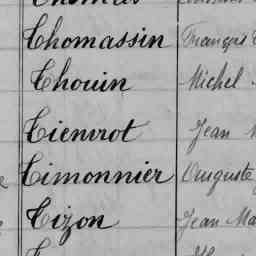 Thomassin François
Thouin Michel
Tienvrot Jean
Timonnier Auguste
Tizon Jean Ma